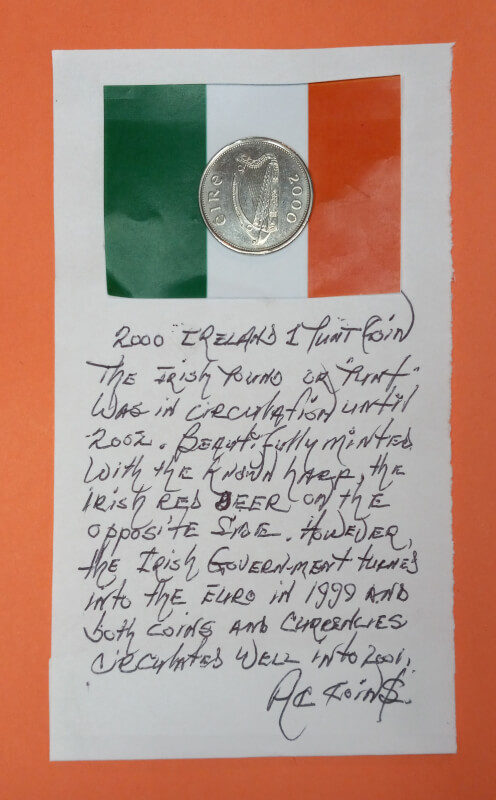 EIRE 2000
2000 IRELAND 1 PUNT COIN
THE IRISH POUND OR "PUNT"
WAS IN CIRCULATION UNTIL
2002. BEAUTIFULLY MINTED
WITH THE KNOWN HARP, THE
IRISH RED DEER ON THE
OPPOSITE SIDE. HOWEVER,
THE IRISH GOVERNMENT TURNED
INTO THE EURO IN 1999 AND
BOTH COINS AND CURRENCIES
CIRCULATED WELL INTO 2001.
AC COIN$.